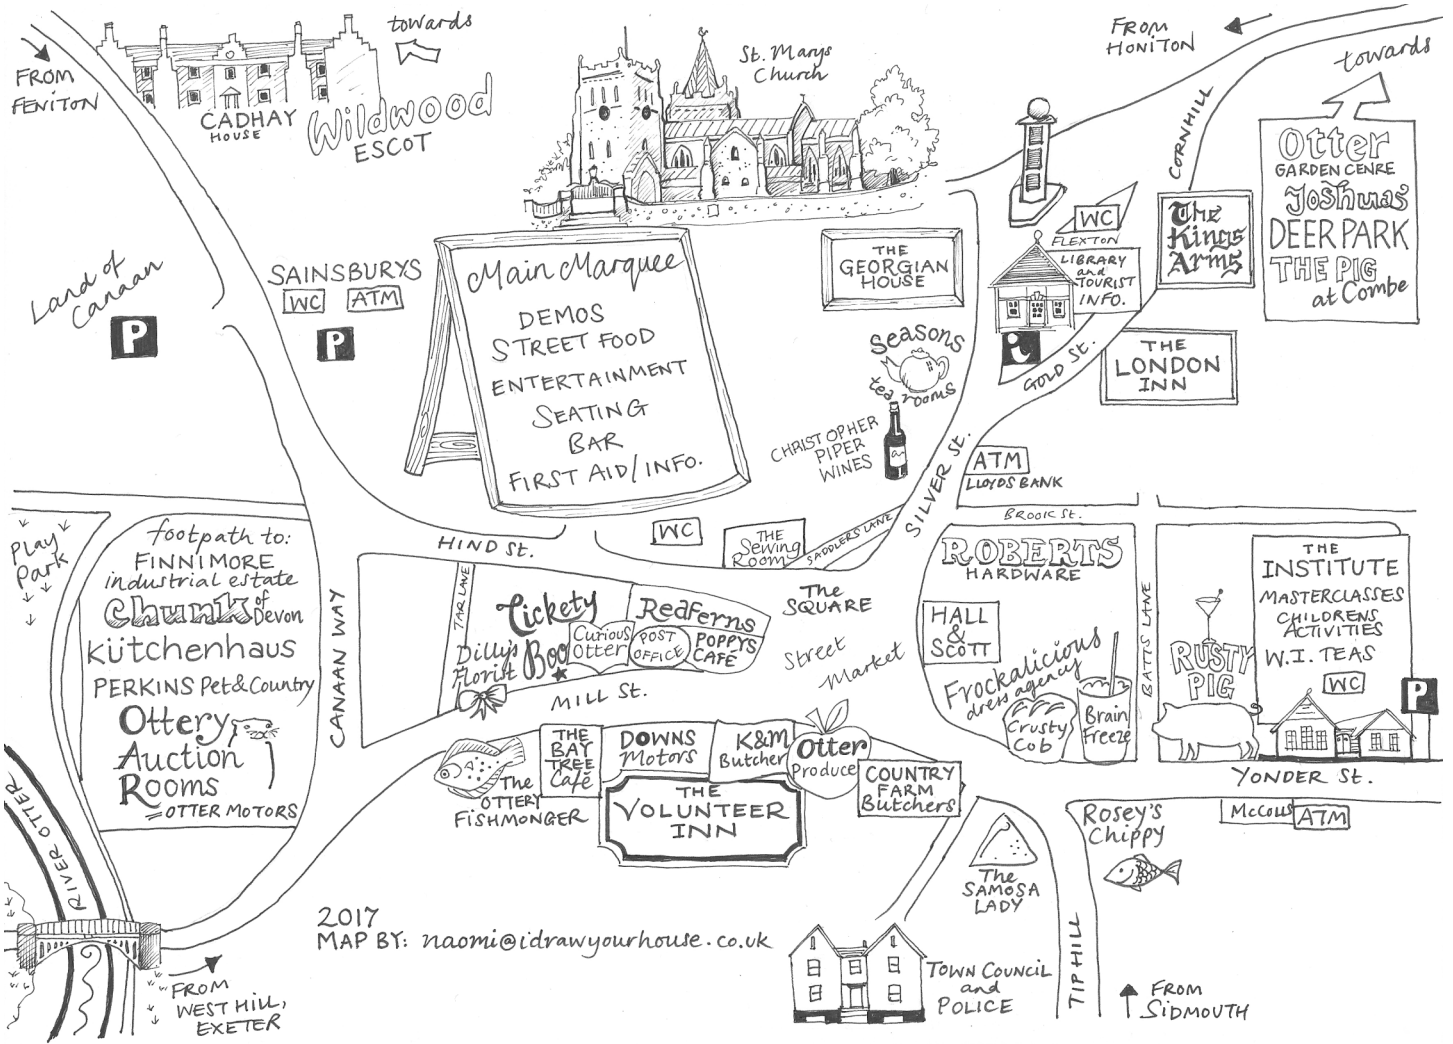 FROM
FENITON
towards
CADHAY
HOUSE
Wildwood
ESCOT
St. Marys
Church
FROM
HONITON
towards
CORNHILL
Otter
GARDEN CENRE
Joshuas'
DEER PARK
THE PIG
at Combe
WC
FLEXTON
LIBRARY
and
TOURIST
INFO.
i
The
Kings
Arms
Land of
Canaan
P
SAINSBURYS
WC
ATM
P
Main Marquee
DEMOS
STREET FOOD
ENTERTAINMENT
SEATING
BAR
FIRST AID/INFO.
THE
GEORGIAN
HOUSE
Seasons
tea rooms
CHRISTOPHER
PIPER
WINES
GOLD ST.
THE
LONDON
INN
SILVER ST.
ATM
LLOYDS BANK
BROOK ST.
Play
Park
footpath to:
FINNIMORE
industrial estate
Chunk of
Devon
Kütchenhaus
PERKINS Pet & Country
Ottery
Auction
Rooms
OTTER MOTORS
CANAAN WAY
HIND ST.
WC
THE
Sewing
Room
SADDLERS LANE
JAR LANE
Tickety
Boo
Dilly's
Florist
Curious
Otter
RedFerns
POST
OFFICE
POPPYS
CAFÉ
The
SQUARE
Street
Market
MILL ST.
ROBERTS
HARDWARE
HALL
&
SCOTT
Frockalicious
dress agency
Crusty
Cob
Brain
Freeze
BATTS LANE
RUSTY
PIG
THE
INSTITUTE
MASTERCLASSES
CHILDRENS
ACTIVITIES
W.I. TEAS
WC
P
YONDER ST.
McColls
ATM
The
OTTERY
FISHMONGER
THE
BAY
TREE
Café
DOWNS
Motors
K&M
Butcher
Otter
Produce
COUNTRY
FARM
Butchers
THE
VOLUNTEER
INN
Rosey's
Chippy
The
SAMOSA
LADY
RIVER OTTER
2017
MAP BY: naomi@idrawyourhouse.co.uk
FROM
WEST HILL,
EXETER
TOWN COUNCIL
and
POLICE
TIP HILL
FROM
SIDMOUTH